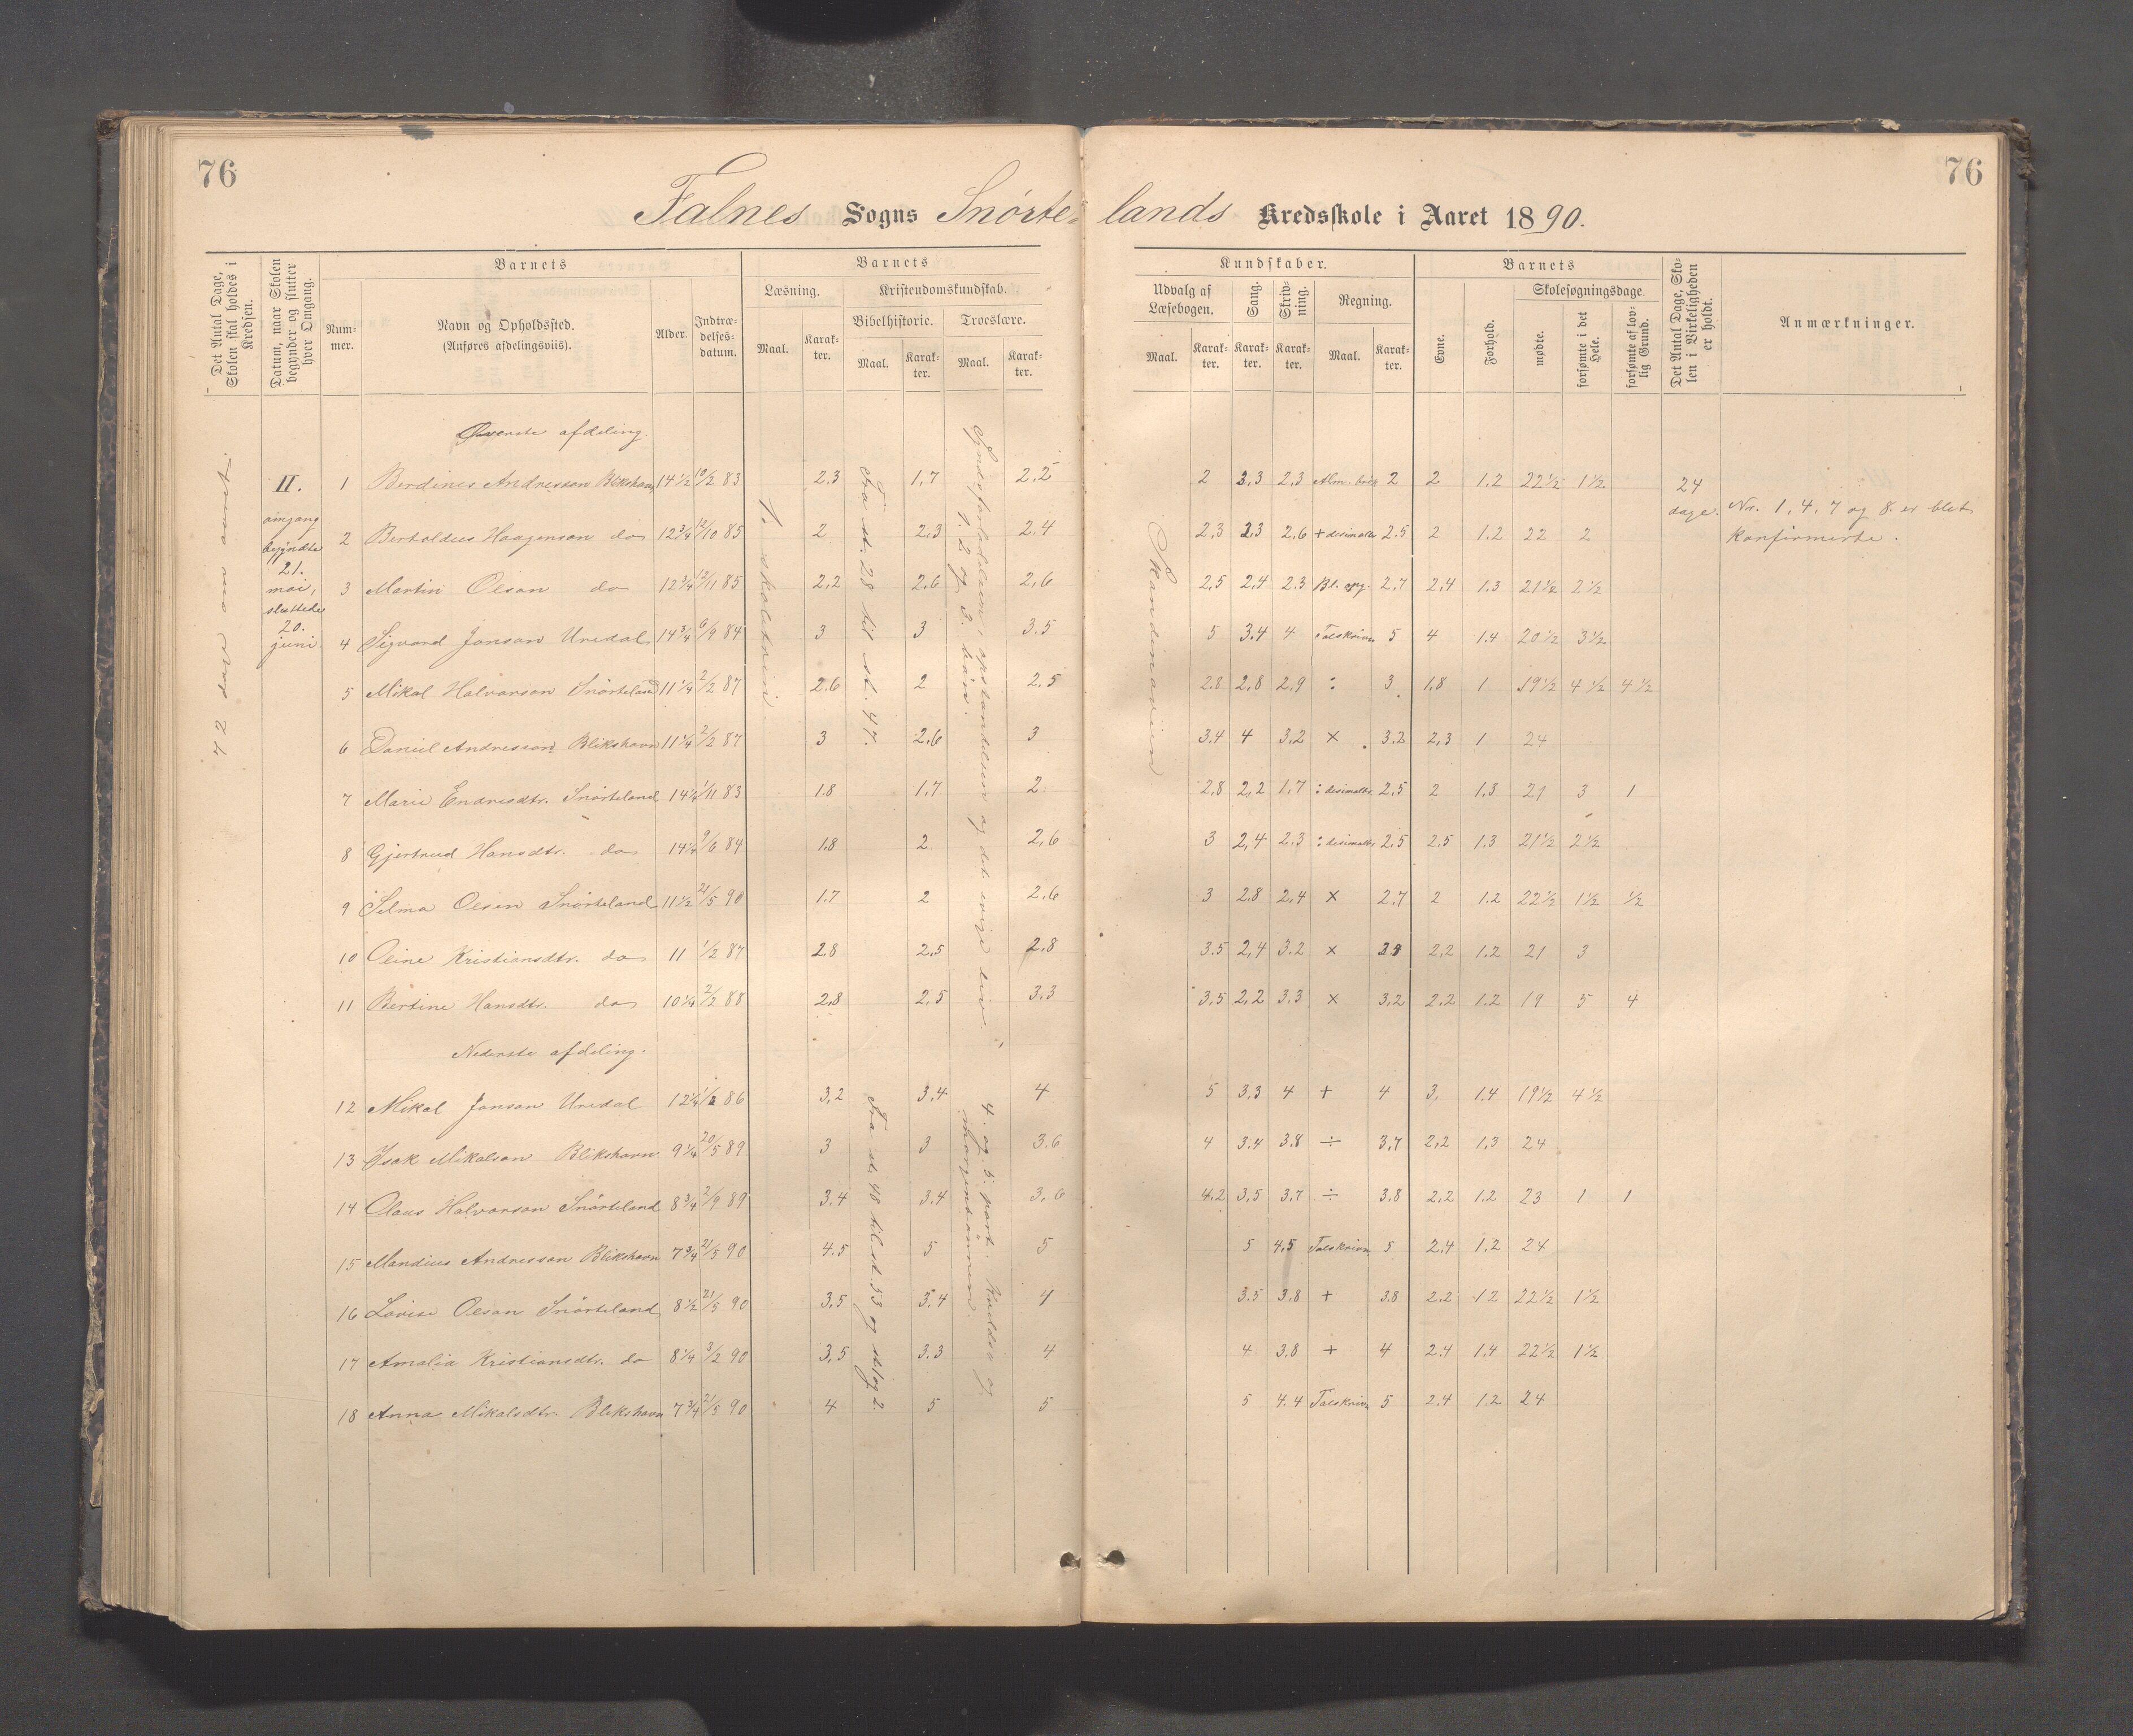 76
76
Falnes Sogns Snørte- lands Kredsskole i Aaret 1890.
Det Antal Dage, Skolen skal holdes i Kredsen.
Datum, naar Skolen begynder og slutter hver Omgang.
Barnets
Num- mer.
Navn og Opholdssted. (Anføres afdelingsviis).
Alder.
Indtræ- delses- datum.
Barnets
Læsning.
Maal.
Karak- ter.
Kristendomskundskab.
Bibelhistorie.
Maal.
Karak- ter.
Troeslære.
Maal.
Karak- ter.
Kundskaber.
Udvalg af Læsebogen.
Maal.
Karak- ter.
Sang.
Karak- ter.
Skriv- ning.
Karak- ter.
Regning.
Maal.
Karak- ter.
Barnets
Evne.
Forhold.
Skolesøgningsdage.
mødte.
forsømte i det Hele.
forsømte af lov- lig Grund.
Det Antal Dage, Sko- len i Virkeligheden er holdt.
Anmærkninger.
72 dage om aaret.
II. omgang begyndte 21. mai, sluttede 20. juni.
Øverste afdeling.
1 Berdines Andresson Blikshavn 14½ 10/2 83 2.3 1,7 2.2 2 3,3 2,3 2 2 1.2 22½ 1½
2 Bertoldus Haagenson do 12¾ 12/10 85 2 2,3 2.4 2,3 2,3 2.6 + desimalbr 2.5 2 1.2 22 2
3 Martin Olson do 12¾ 12/11 85 2,2 2,6 2,6 2,5 2,4 2.3 2,7 2,4 1.3 21½ 2½
4 Sigvard Janson Uredal 14¾ 6/9 84 3 3 3.5 5 3.4 4 Talskrivn 5 4 1.4 20½ 3½
5 Mikal Halvorson Snørteland 11¼ 2/2 87 2.6 2 2.5 2.8 2,8 2,9 : 3 1,8 1 19½ 4½ 4½
6 Daniel Andresson Blikshavn 11¼ 2/2 87 3 2,6 3 3.4 4 3,2 × 3.2 2,3 1 24
7 Marie Endresdtr. Snørteland 14¼ 1/11 83 1.8 1,7 2 2,8 2,2 1,7 : desimalbr. 2,5 2 1,3 21 3 1
8 Gjertrud Hansdtr. do 14¼ 9/6 84 1.8 2 2,6 3 2,4 2.3 : desimalbr 2,5 2.5 1.3 21½ 2½
9 Selma Olsen Snørteland 11½ 21/5 90 1.7 2 2.6 3 2.8 2,4 × 2,7 2 1.2 22½ 1½ ½
10 Oline Kristiansdtr. do 11 1/2 87 2.8 2,5 2,8 3.5 2,4 3.2 × 2,2 1.2 21 3
11 Bertine Hansdtr. do 10¼ 2/2 88 2,8 2,5 3.3 3,5 2,2 3,3 × 3,2 2.2 1.2 19 5 4
Nederste afdeling.
12 Mikal Janson Uredal 12¼ 1/2 86 3,2 3,4 4 5 3,3 4 + 4 3, 1.4 19½ 4½
13 Isak Mikalson Blikshavn 9¼ 20/5 89 3 3 3.6 4 3.4 3.8 ÷ 3,7 2,2 1,3 24
14 Olaus Halvorson Snørteland 8¾ 2/9 89 3.4 3.4 3,6 4.2 3,5 3,7 ÷ 3,8 2,2 1.2 23 1 1
15 Mandius Andresson Blikshavn 7¾ 21/5 90 4.5 5 5 5 4,5 Talskrivn 5 2.4 1.2 24
16 Lovise Olsan Snørteland 8½ 21/5 90 3,5 3.4 4 3.5 3,8 + 3.8 2.2 1.2 22½ 1½
17 Amalia Kristiansdtr. do 8¼ 3/2 90 3,5 3.3 4 4 3,8 + 4 2.4 1.4 22½ 1½
18 Anna Mikalsdtr. Blikshavn 7¾ 21/5 90 4 5 5 5 4.4 Talskriv. 5 2.4 1.2 24
Fra st. 28 til st. 47.
Syndsforladelsen, opstandelsen og det evige liv.
1. 2 og 3. bøn.
Fra st. 48 til st. 53 og st 1 og 2.
4. og 5. part. Kvelds og morgenbønnen.
Skandinavien
24 dage.
Nr. 1, 4, 7 og 8 er blet
konfirmerte.